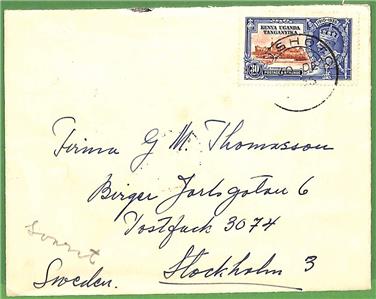 KENYA UGANDA
TANGANYIKA
POSTAGE & REVENUE
Firma G M. Thomasson
Birger Jarlsgatan 6
Postfack 3074
Stockholm 3
Sweden.